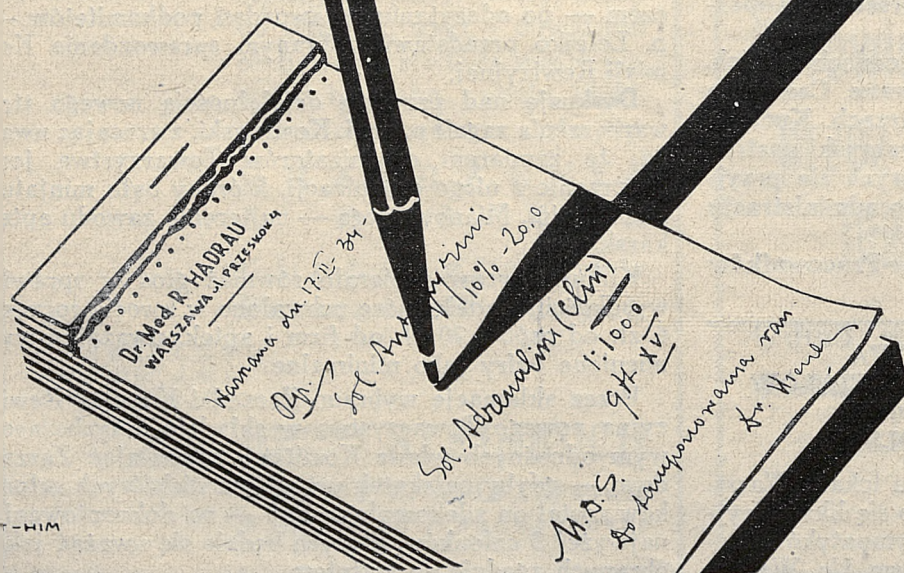 Dr. Med. R. HADRAU
WARSZAWA ul. PRZESKOK 4
Warszawa dn. 17.II-34-
Rp.
Sol. Antipyrini
10% - 20.0
Sol. Adrenalini (Clin)
1:1000
gtt XV
M.D.S.
Do tamponowania ran
Dr.
T-HIM